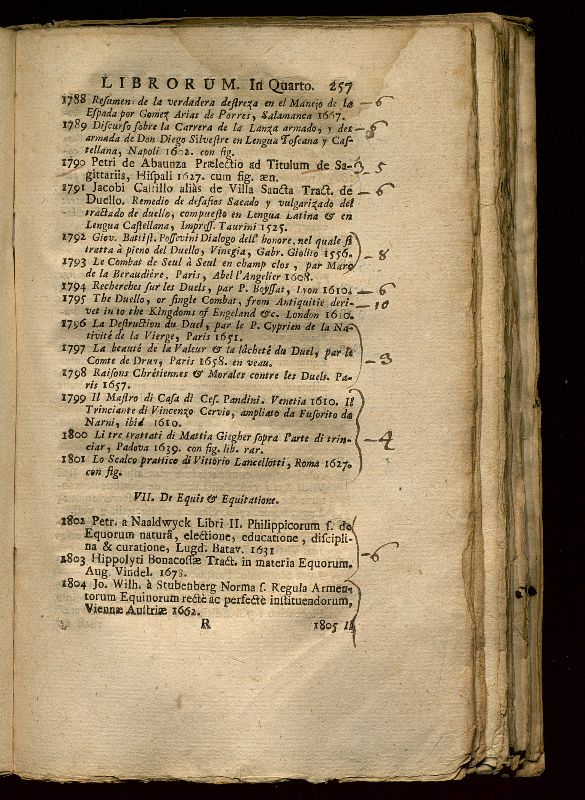 LIBRORUM. In Quarto. 257
1788 Resumen de la verdadera destreza en el Manejo de la — 6
Espada por Gomez Arias de Porres, Salamanca 1667.
1789 Discurso sobre la Carrera de la Lanza armado, y des — 6
armada de Don Diego Silvestre en Lengua Toscana y Cas-
tellana, Napoli 1602. con fig.
1790 Petri de Abaunza Prælectio ad Titulum de Sa- — 3 — 5
gittariis, Hispali 1627. cum fig. æn.
1791 Jacobi Castillo aliàs de Villa Sancta Tract. de — 6
Duello. Remedio de desafios Sacado y vulgarizado del
tractado de duello, compuesto en Lengua Latina & en
Lengua Castellana, Impress. Taurini 1525.
1792 Giov. Battist. Possevini Dialogo dell' honore, nel quale si
tratta à pieno del Duello, Vinegia, Gabr. Giolito 1556. — 8
1793 Le Combat de Seul à Seul en champ clos, par Marc
de la Beraudière. Paris, Abel l'Angelier 1608.
1794 Recherches sur les Duels, par P. Boyssat, Lyon 1610. — 6
1795 The Duello, or single Combat, from Antiquitie deri- — 10
vet in to the Kingdoms of Engeland &c. London 1610.
1796 La Destruction du Duel, par le P. Cyprien de la Na-
tivité de la Vierge, Paris 1651.
1797 La beauté de la Valeur & la lâcheté du Duel, par le — 3
Comte de Druy, Paris 1658. en veau.
1798 Raisons Chrétiennes & Morales contre les Duels. Pa-
ris 1657.
1799 Il Mastro di Casa di Ces. Pandini. Venetia 1610. Il
Trinciante di Vincenzo Cervio, ampliato da Fusorito da
Narni, ibid 1610.
1800 Li tre trattati di Mattia Giegher sopra Parte di trin- — 4
ciar, Padova 1639. con fig. lib. rar.
1801 Lo Scalco prattico di Vittorio Lancellotti, Roma 1627.
con fig.
VII. De Equis & Equitatione.
1802 Petr. a Naaldwyck Libri II. Philippicorum s. de
Equorum naturâ, electione, educatione, discipli-
na & curatione, Lugd. Batav. 1631 — 6
1803 Hippolyti Bonacossæ Tract. in materia Equorum,
Aug. Vindel. 1673.
1804 Jo. Wilh. à Stubenberg Norma s. Regula Armen-
torum Equinorum rectè ac perfectè instituendorum,
Viennæ Austriæ 1662.
R 1805 Il